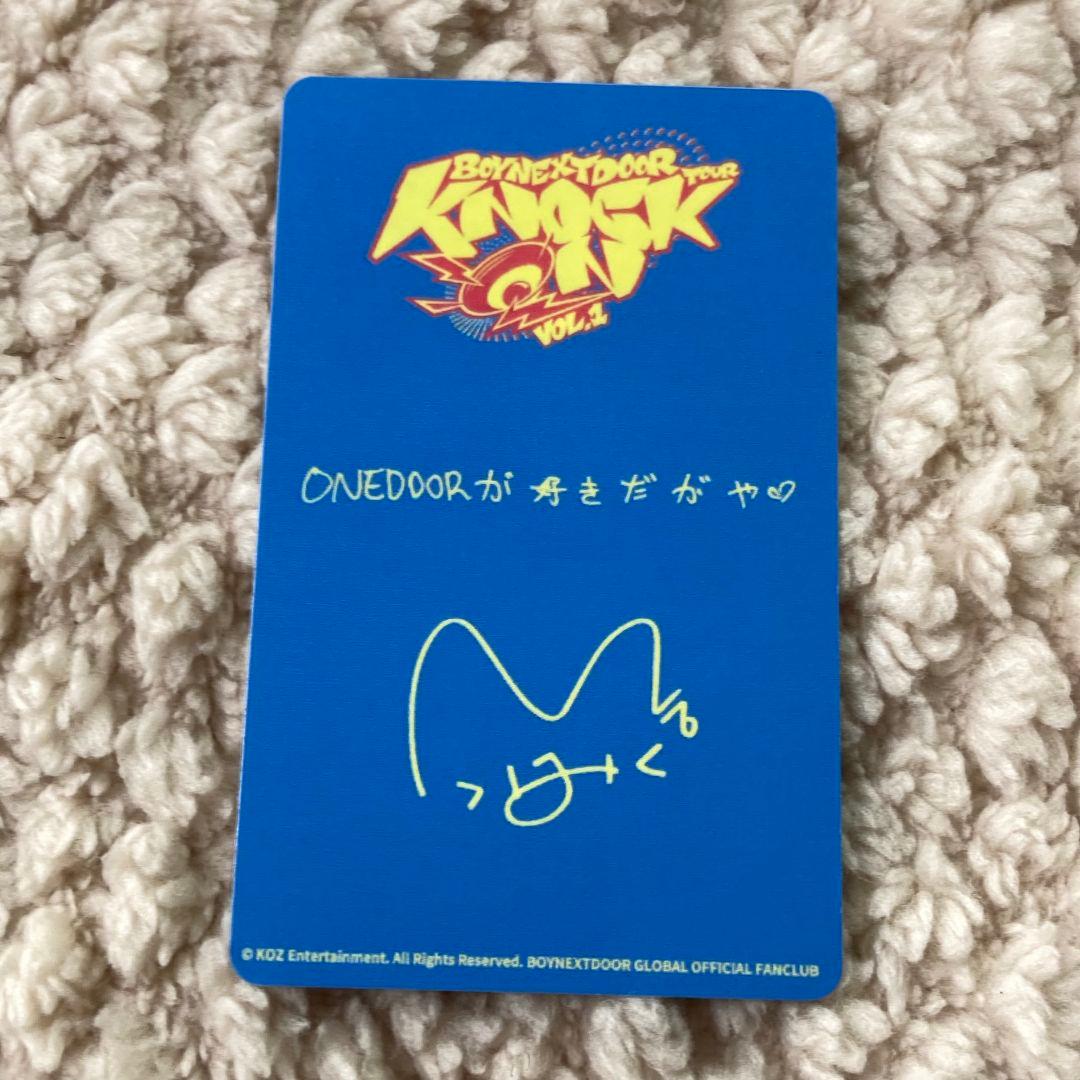 BOYNEXTDOOR TOUR
KNOCK
ON
VOL.1
ONEDOORが好きだがや♡
© KOZ Entertainment. All Rights Reserved. BOYNEXTDOOR GLOBAL OFFICIAL FANCLUB